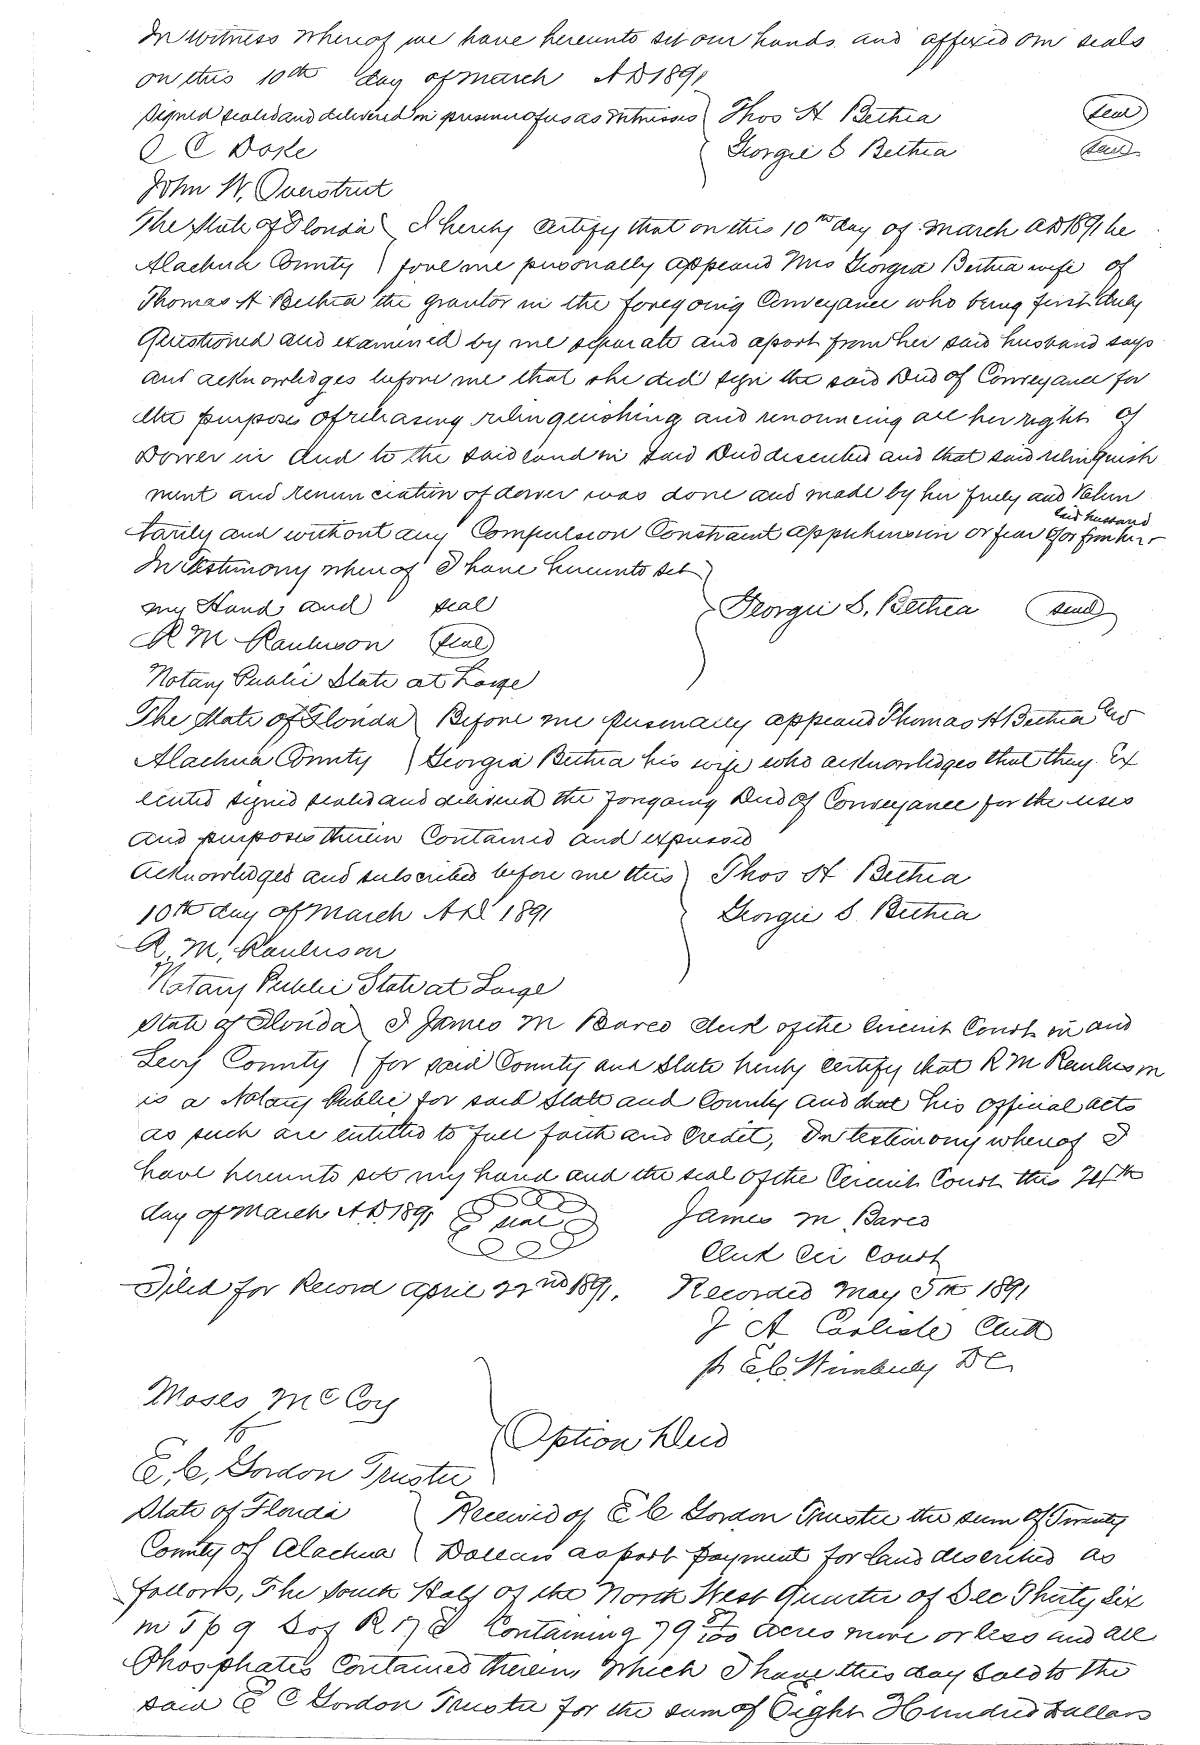 In witness whereof we have hereunto set our hands and affixed our seals
on this 10th day of March AD 1891
Signed sealed and delivered in presence of us as witnesses Thos H Bethea (seal)
C C Doke Georgie S Bethea (seal)
John W. Overstreet
The State of Florida I hereby certify that on this 10th day of March AD 1891 be
Alachua County fore me personally appeared Mrs Georgia Bethea wife of
Thomas H Bethea the grantor in the foregoing Conveyance who being first duly
questioned and examined by me separate and apart from her said husband says
and acknowledges before me that she did sign the said Deed of Conveyance for
the purposes of releasing relinquishing and renouncing all her right of
Dower in and to the said land in said Deed described and that said relinquish
ment and renunciation of dower was done and made by her freely and Volun
tarily and without any Compulsion Constraint apprehension or fear of or from her said husband
In Testimony whereof I have hereunto set
my Hand and seal Georgie S. Bethea (seal)
R M Raulerson (seal)
Notary Public State at Large
The State of Florida Before me personally appeared Thomas H Bethea and
Alachua County Georgia Bethea his wife who acknowledges that they Ex
ecuted signed sealed and delivered the forgoing Deed of Conveyance for the uses
and purposes therein Contained and expressed
Acknowledged and subscribed before me this Thos H Bethea
10th day of March A D 1891 Georgie S. Bethea
R. M. Raulerson
Notary Public State at Large
State of Florida I James M Barco Clerk of the Circuit Court in and
Levy County for said County and State hereby certify that R M Raulerson
is a Notary Public for said State and County and that his official acts
as such are entitled to full faith and Credit, In testimony whereof I
have hereunto set my hand and the seal of the Circuit Court this 24th
day of March A.D. 1891 seal James M. Barco
Clerk Cir Court
Filed for Record April 22nd 1891. Recorded May 5th 1891
J A Carlisle Clerk
pr E.C. Wimberly DC
Moses McCoy
to Option Deed
E. C. Gordon Trustee
State of Florida Received of E C Gordon Trustee the sum of Twenty
County of Alachua Dollars as part payment for land described as
follows, The South Half of the North West Quarter of Sec Thirty Six
in Tp 9 S of R 17 E Containing 79 /100 acres more or less and all
Phosphates Contained therein, Which I have this day sold to the
said E C Gordon Trustee for the sum of Eight Hundred Dollars